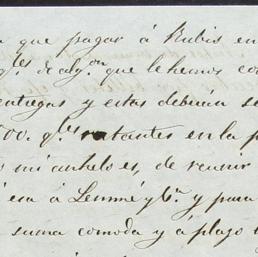 que pagar á Rubis en
q.les de alg.on que le hemos co
entregas y estas deberán se
00. q.les restantes en la p
mi anhelo es, de reunir
esa á Lemmé y C.a y para
suma comoda y á plazo